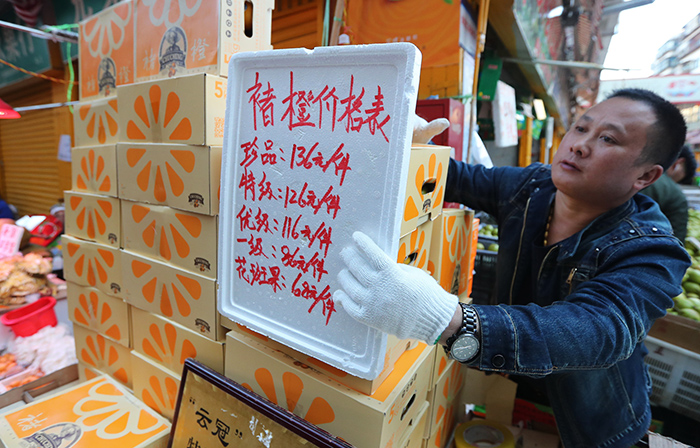 褚橙价格表
珍品：136元/件
特级：126元/件
优级：116元/件
一级：86元/件
花斑果：68元/件
褚橙
"云冠"